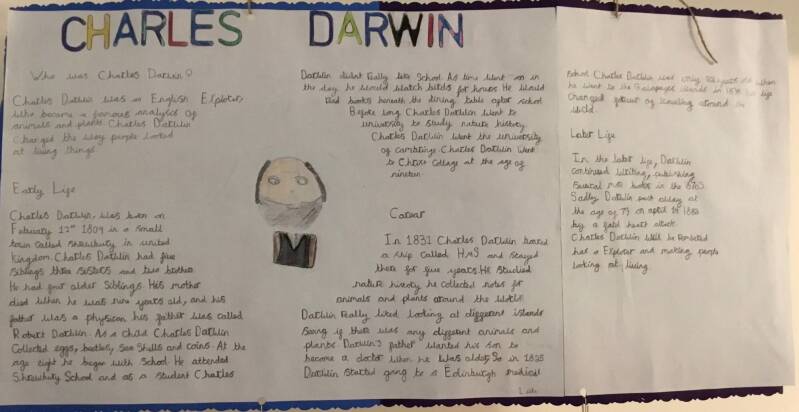 CHARLES DARWIN
Who was Charles Darwin?
Charles Darwin was an English Explorer,
who became a famous analysist of
animals and plants. Charles Darwin
changed the way people looked
at living things.
Early Life
Charles Darwin, was born on
Febuary 12th 1809 in a small
town called Shrewsbury in united
kingdom. Charles Darwin had five
siblings three sisters and two brother.
He had four older siblings. His mother
died when he was nine years old, and his
father was a physician his father was called
Robert Darwin. As a child Charles Darwin
collected eggs, beetles, sea shells and coins. At the
age eight he began with school. He attended
Shrewsbury School and as a student Charles
Darwin didnt really like school. As time went on in
the day he would watch birds for hours. He would
read books beneath the dining table after school
Before long Charles Darwin went to
university to study nature history
Charles Darwin went the university
of cambridge. Charles Darwin went
to Christ collage at the age of
nineteen.
Career
In 1831 Charles Darwin board
a ship called HMS and stayed
there for five years. He studied
nature history he collected notes for
animals and plants around the world.
Darwin really liked looking at different islands
seeing if there was any different animals and
plants. Darwin's father wanted his son to
become a doctor when he was older. So in 1825
Darwin started going to a Edinburgh medical
school. Charles Darwin was only years old when
he went to the Galapagos islands in his life
changed of traveling around the
world.
Later Life
In the later life, Darwin
continued writing, publishing
several books in the
Sadly Darwin past away at
the age of 73 on april 19 1882
by a fatal heart attack.
Charles Darwin will be
has a Explorer and making people
looking at living.